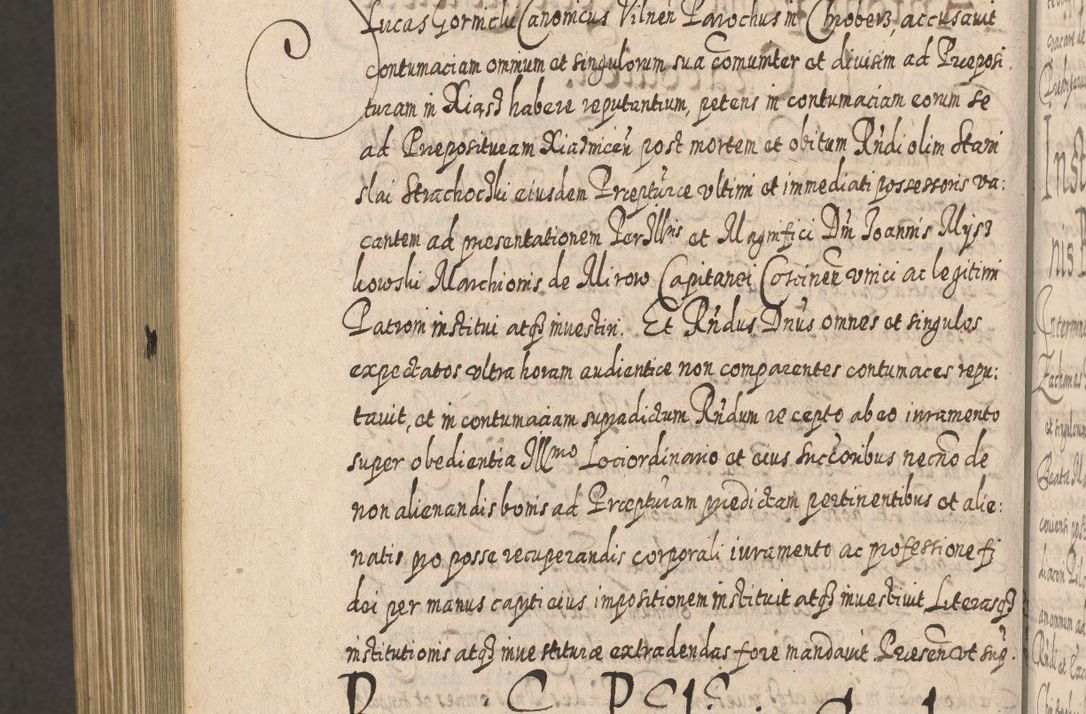 Lucas Gornicki Canonicus Vilnen Parochus in Chroberz, accusavit
contumaciam omnium et singulorum sua comuniter et divisim ad Præposi
turam in Xiasz habere reputantium, petens in contumaciam eorum se
ad Præposituram Xiasnicen post mortem et obitum Rndi olim Stani
slai Strachocki eiusdem Præpturæ ultimi et immediati possessoris va:
cantem ad præsentationem PerIllris et Magnifici Dni Joannis Mysz
kowski Marchionis de Mirow Capitanei Corcinen unici ac legitimi
Patroni institui atqз investiri. Et Rndus Dnus omnes et singulos
expectatos ultra horam audientiæ non comparentes contumaces repu:
tavit, et in contumaciam supradictum Rndum recepto ab eo iuramento
super obedientia Illmo Lociordinario et eius succoribus necno de
non alienandis bonis ad Præpturam prædictam pertinentibus et alie:
natis pro posse recuperandis corporali iuramento ac professione fi
dei per manus capiti eius impositionem instituit atqз investivit Literasqз
institutionis atqз investituræ extradendas fore mandavit Præsen ut sup.